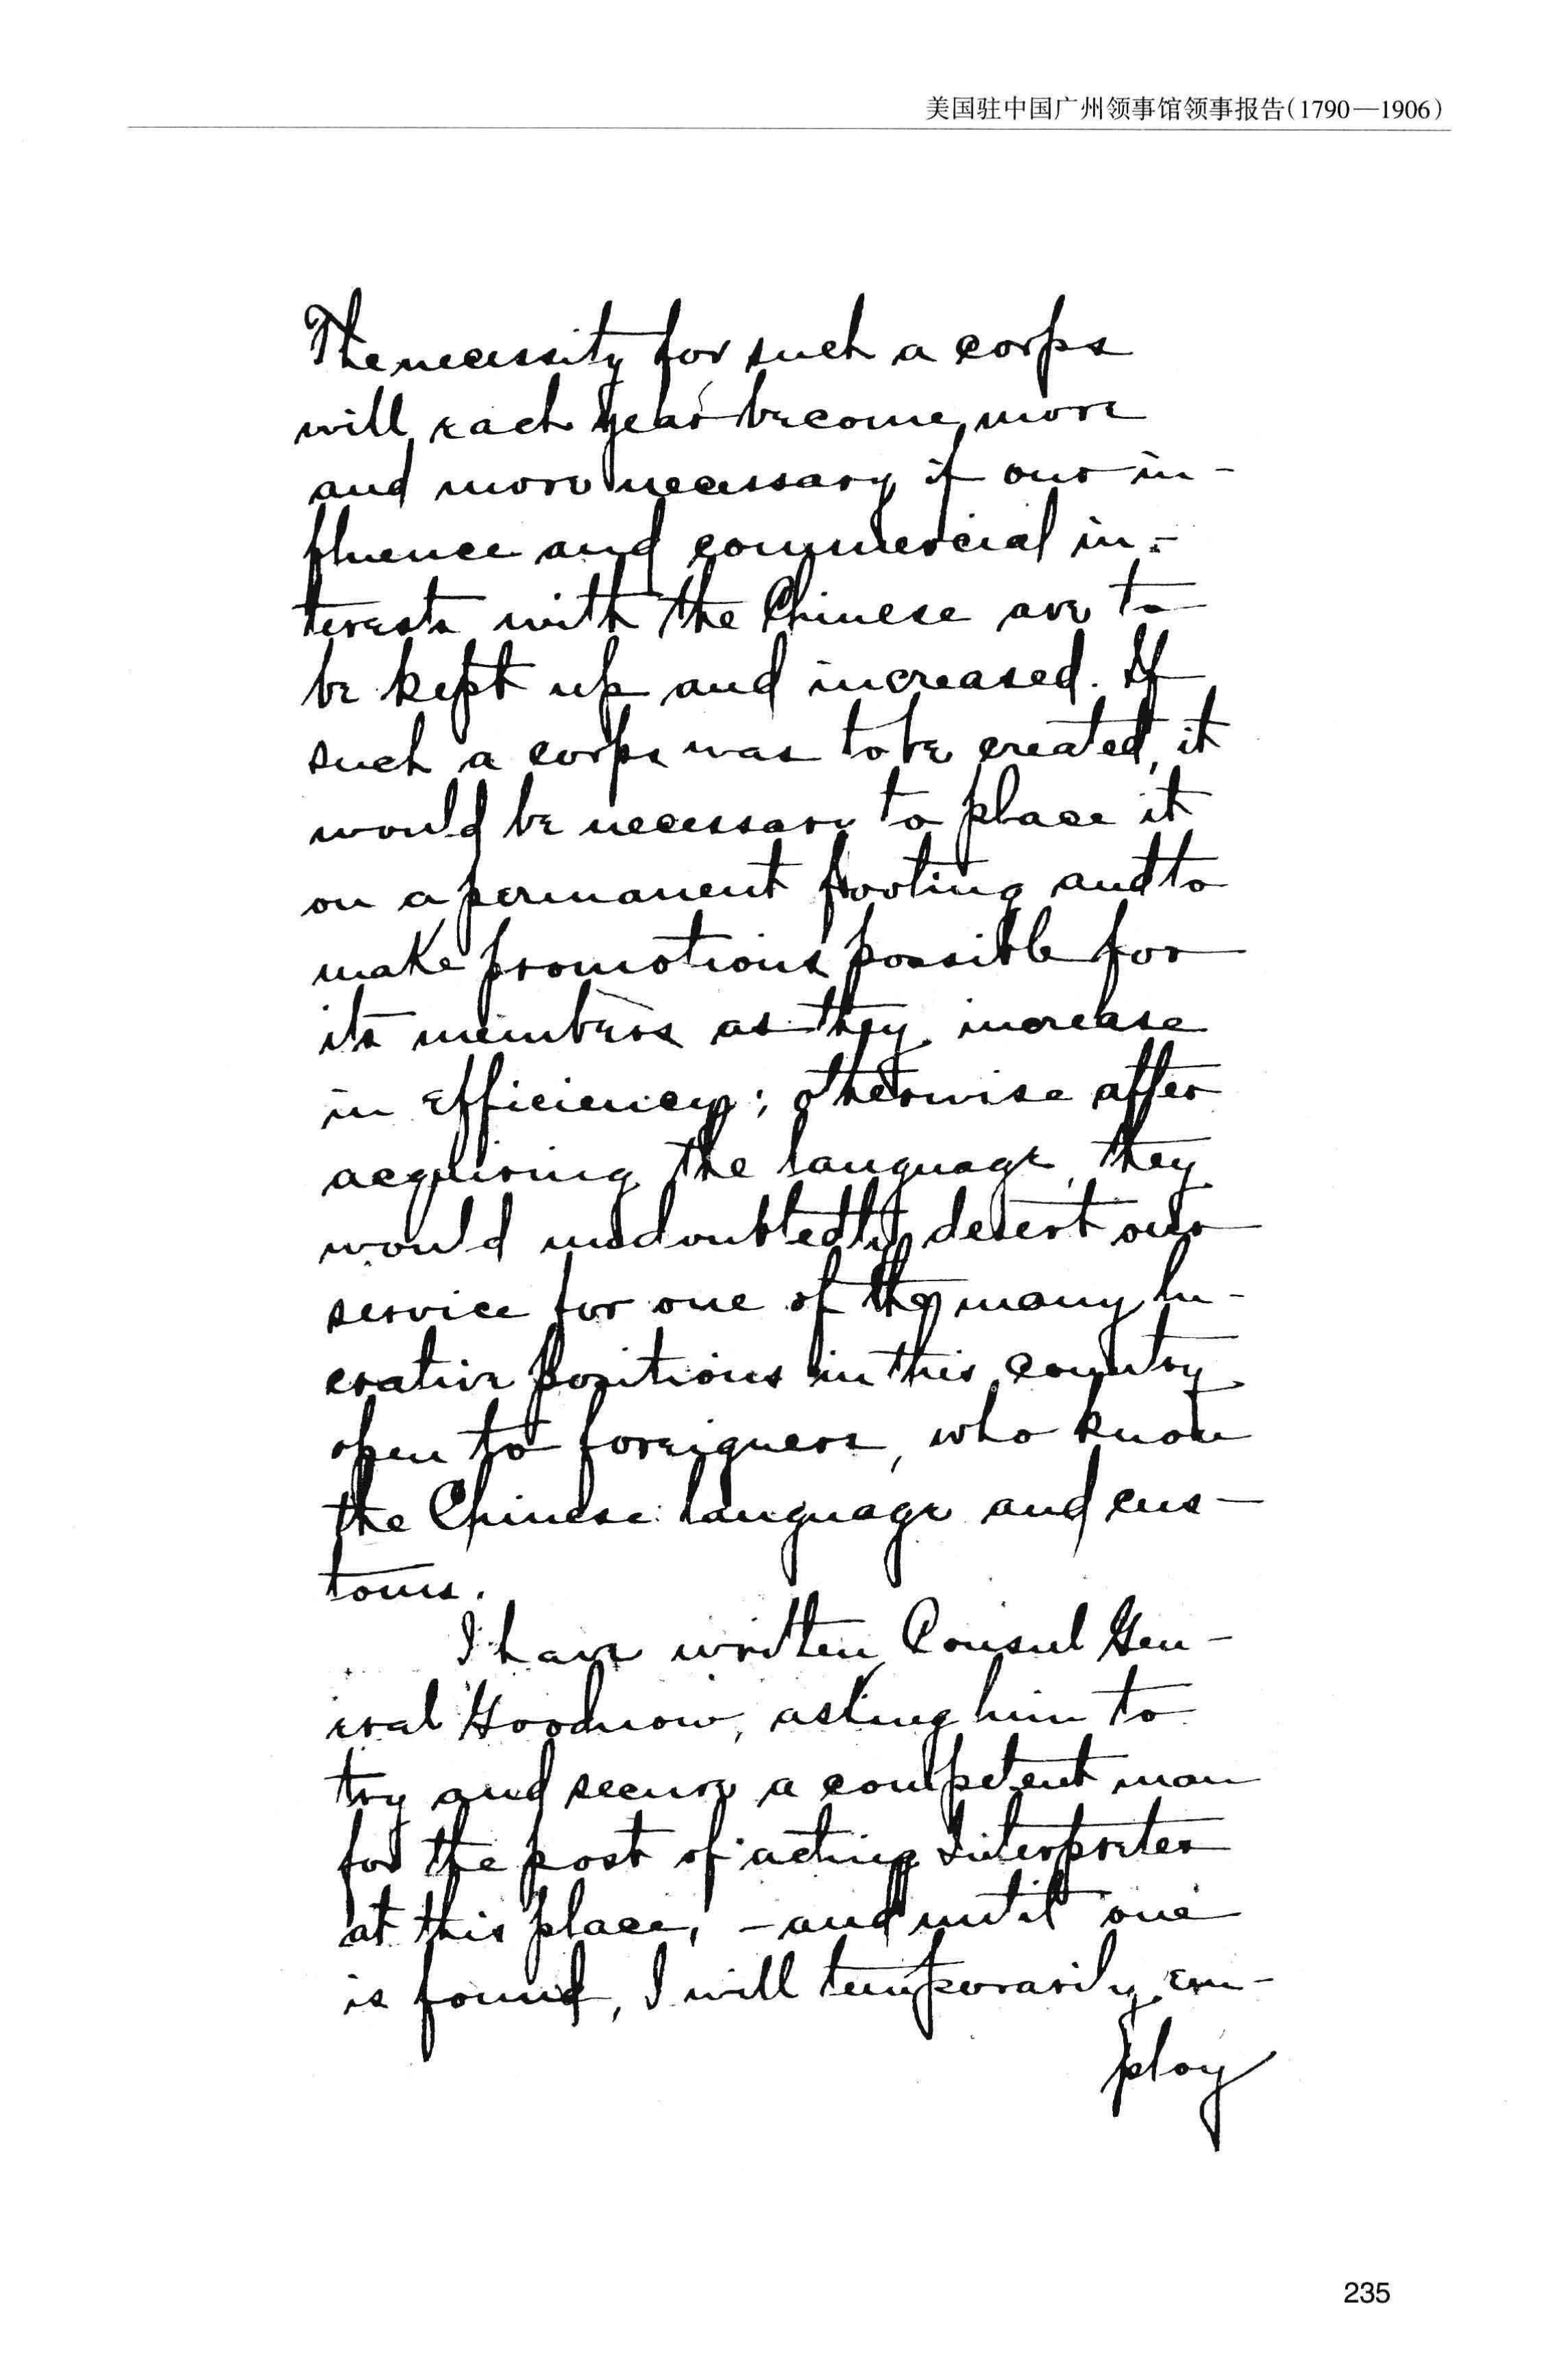 美国驻中国广州领事馆领事报告(1790—1906)
The necessity for such a corps
will each year become more
and more necessary if our in-
fluence and commercial in-
terests with the Chinese are to
be kept up and increased. If
such a corps was to be created, it
would be necessary to place it
on a permanent footing and to
make promotions possible for
its members as they increase
in efficiency; otherwise after
acquiring the language, they
would undoubtedly desert our
service for one of the many lu-
crative positions in this country
open to foreigners, who know
the Chinese language and cus-
toms.
I have written Consul Gen-
eral Goodnow, asking him to
try and secure a competent man
for the post of acting Interpreter
at this place, - and until one
is found, I will temporarily em-
ploy
235